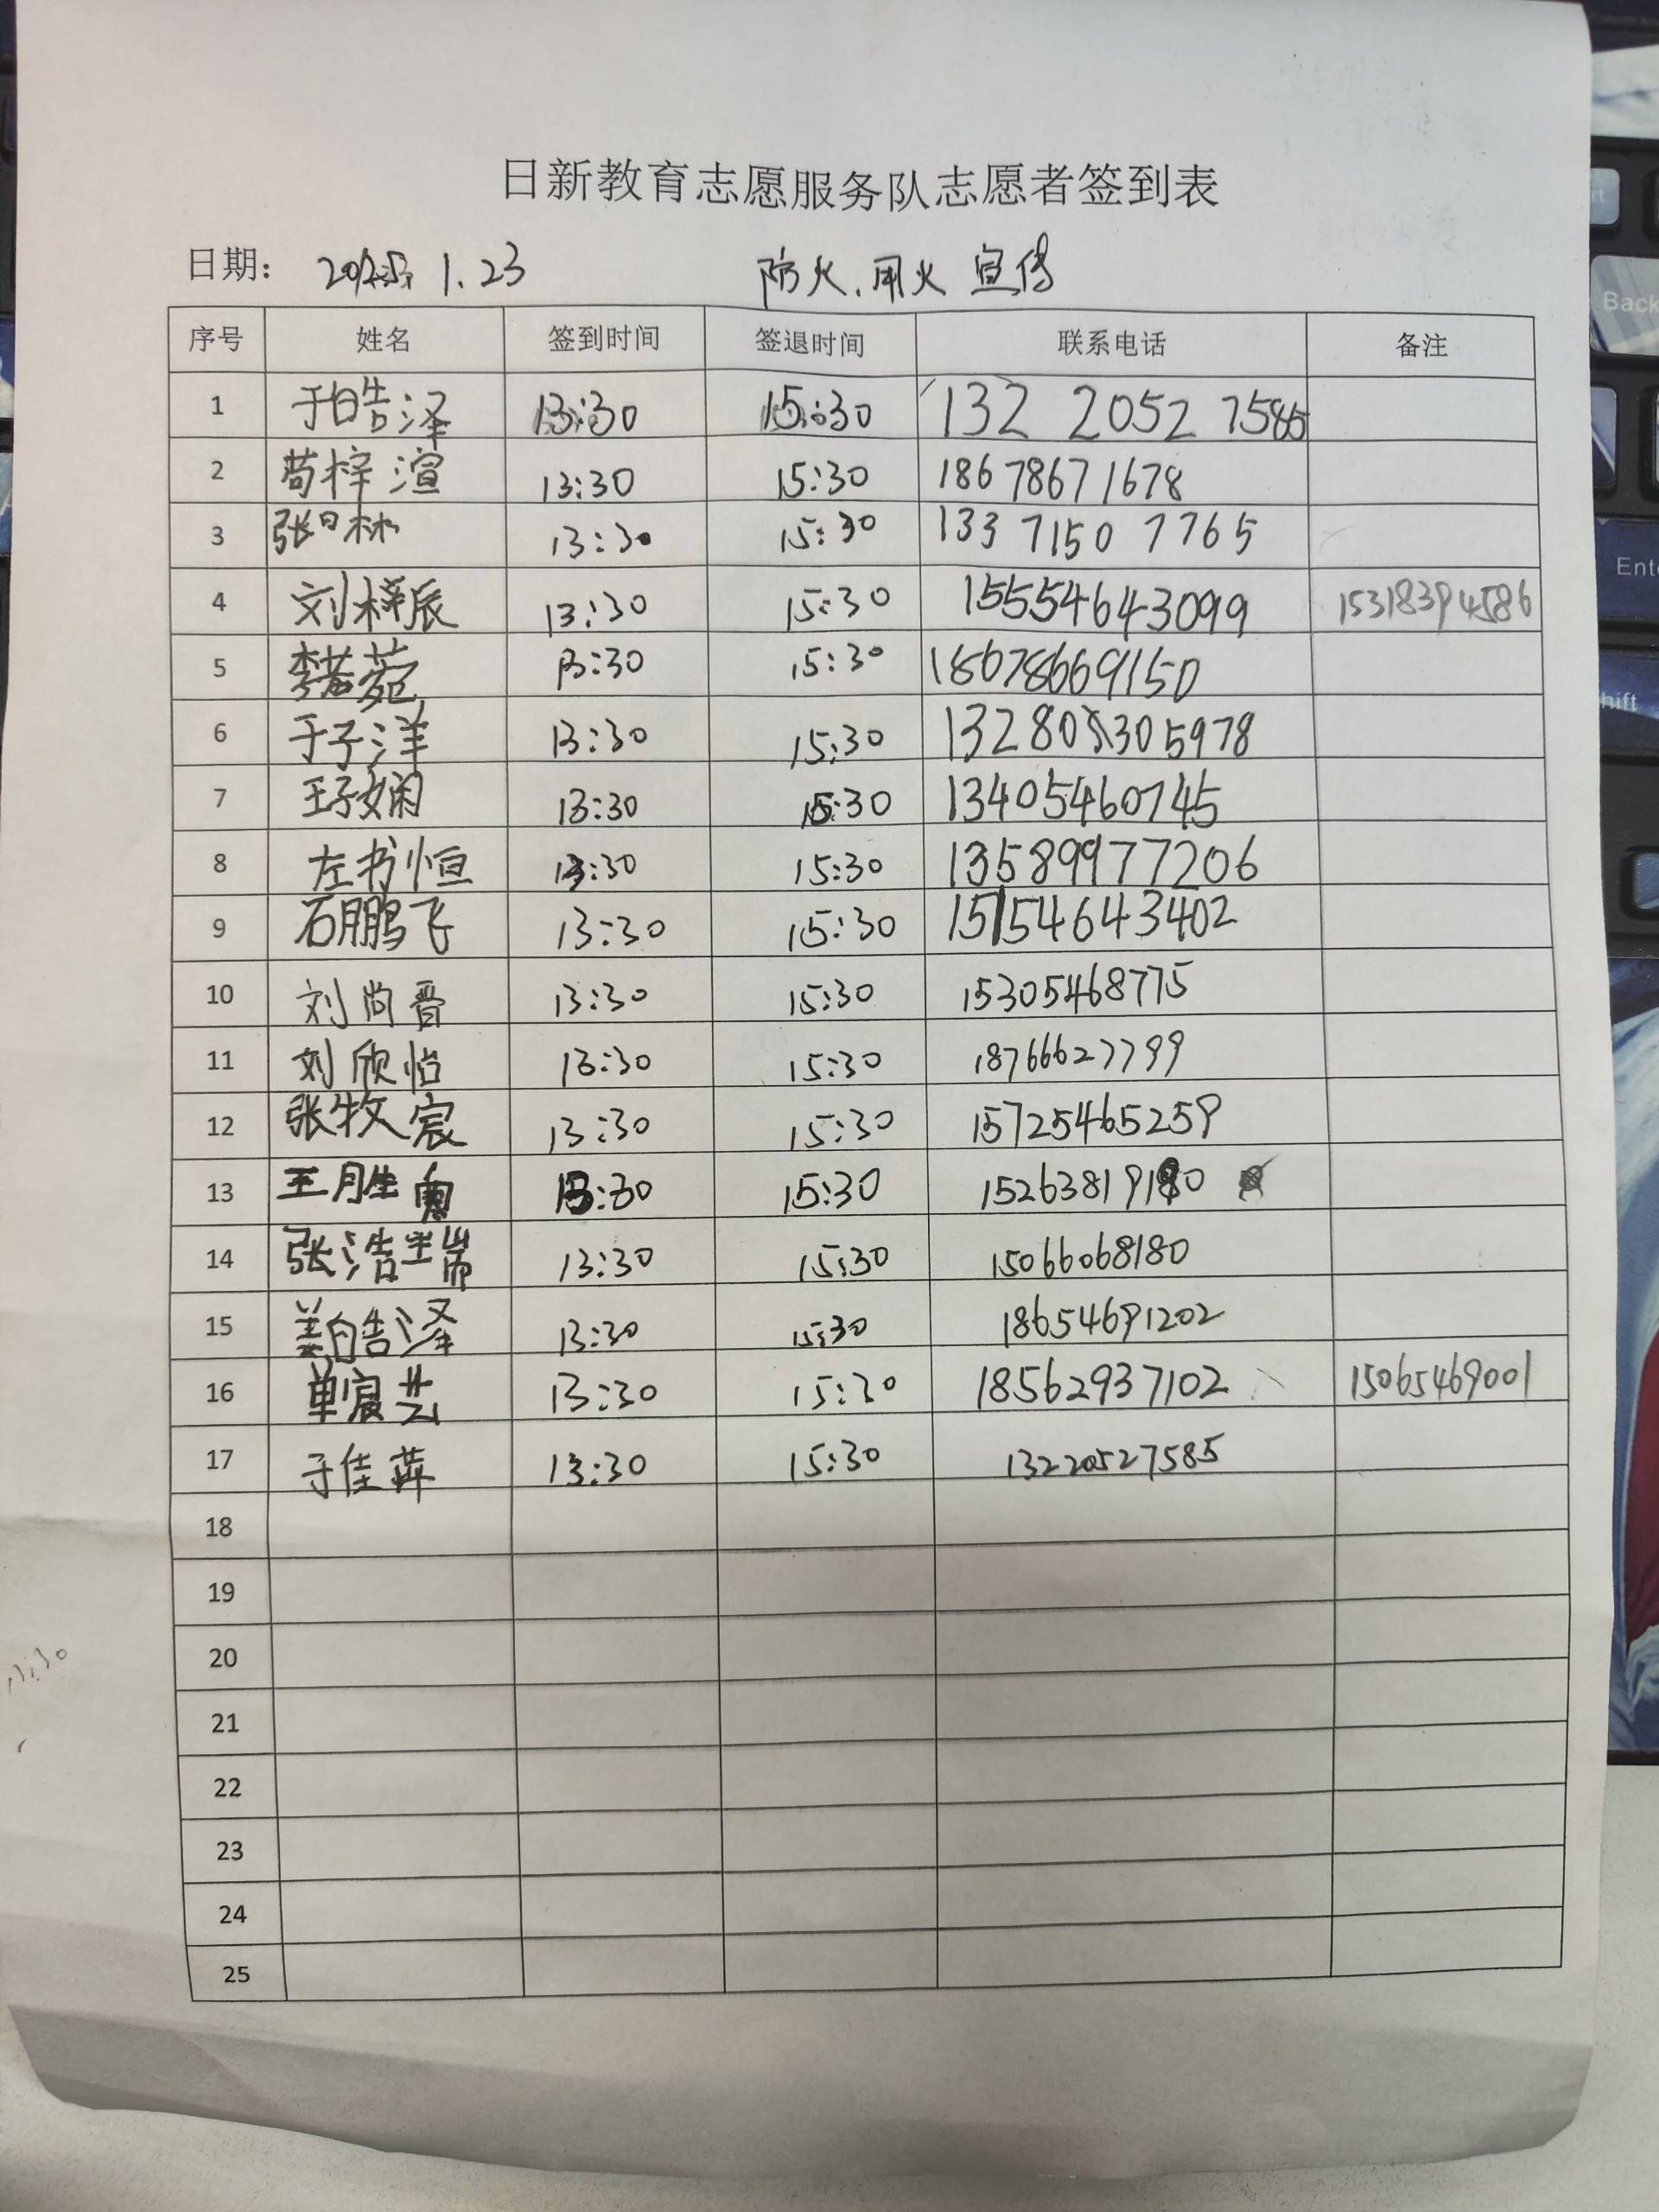 日新教育志愿服务队志愿者签到表
日期： 2025. 1.23 防火、用火 宣传
序号 姓名 签到时间 签退时间 联系电话 备注
1 于皓泽 13:30 15:30 132 2052 7585
2 苟梓渲 13:30 15:30 18678671678
3 13:30 15:30 133 7150 7765
4 刘梓辰 13:30 15:30 15554643099 15318394586
5 李若菀 13:30 15:30 18678669150
6 于子洋 13:30 15:30
7 王子娴 13:30 15:30 13405460745
8 左书恒 13:30 15:30 13589977206
9 石鹏飞 13:30 15:30 15154643402
10 刘尚晋 13:30 15:30 15305468775
11 刘欣怡 13:30 15:30 18766627799
12 张牧宸 13:30 15:30 15725465259
13 13:30 15:30
14 张浩瑞 13:30 15:30 15066068180
15 姜皓泽 13:30 15:30 18654691202
16 单宸芸 13:30 15:30 18562937102 15065469001
17 于佳 13:30 15:30 13220527585
18
19
20
21
22
23
24
25
Back